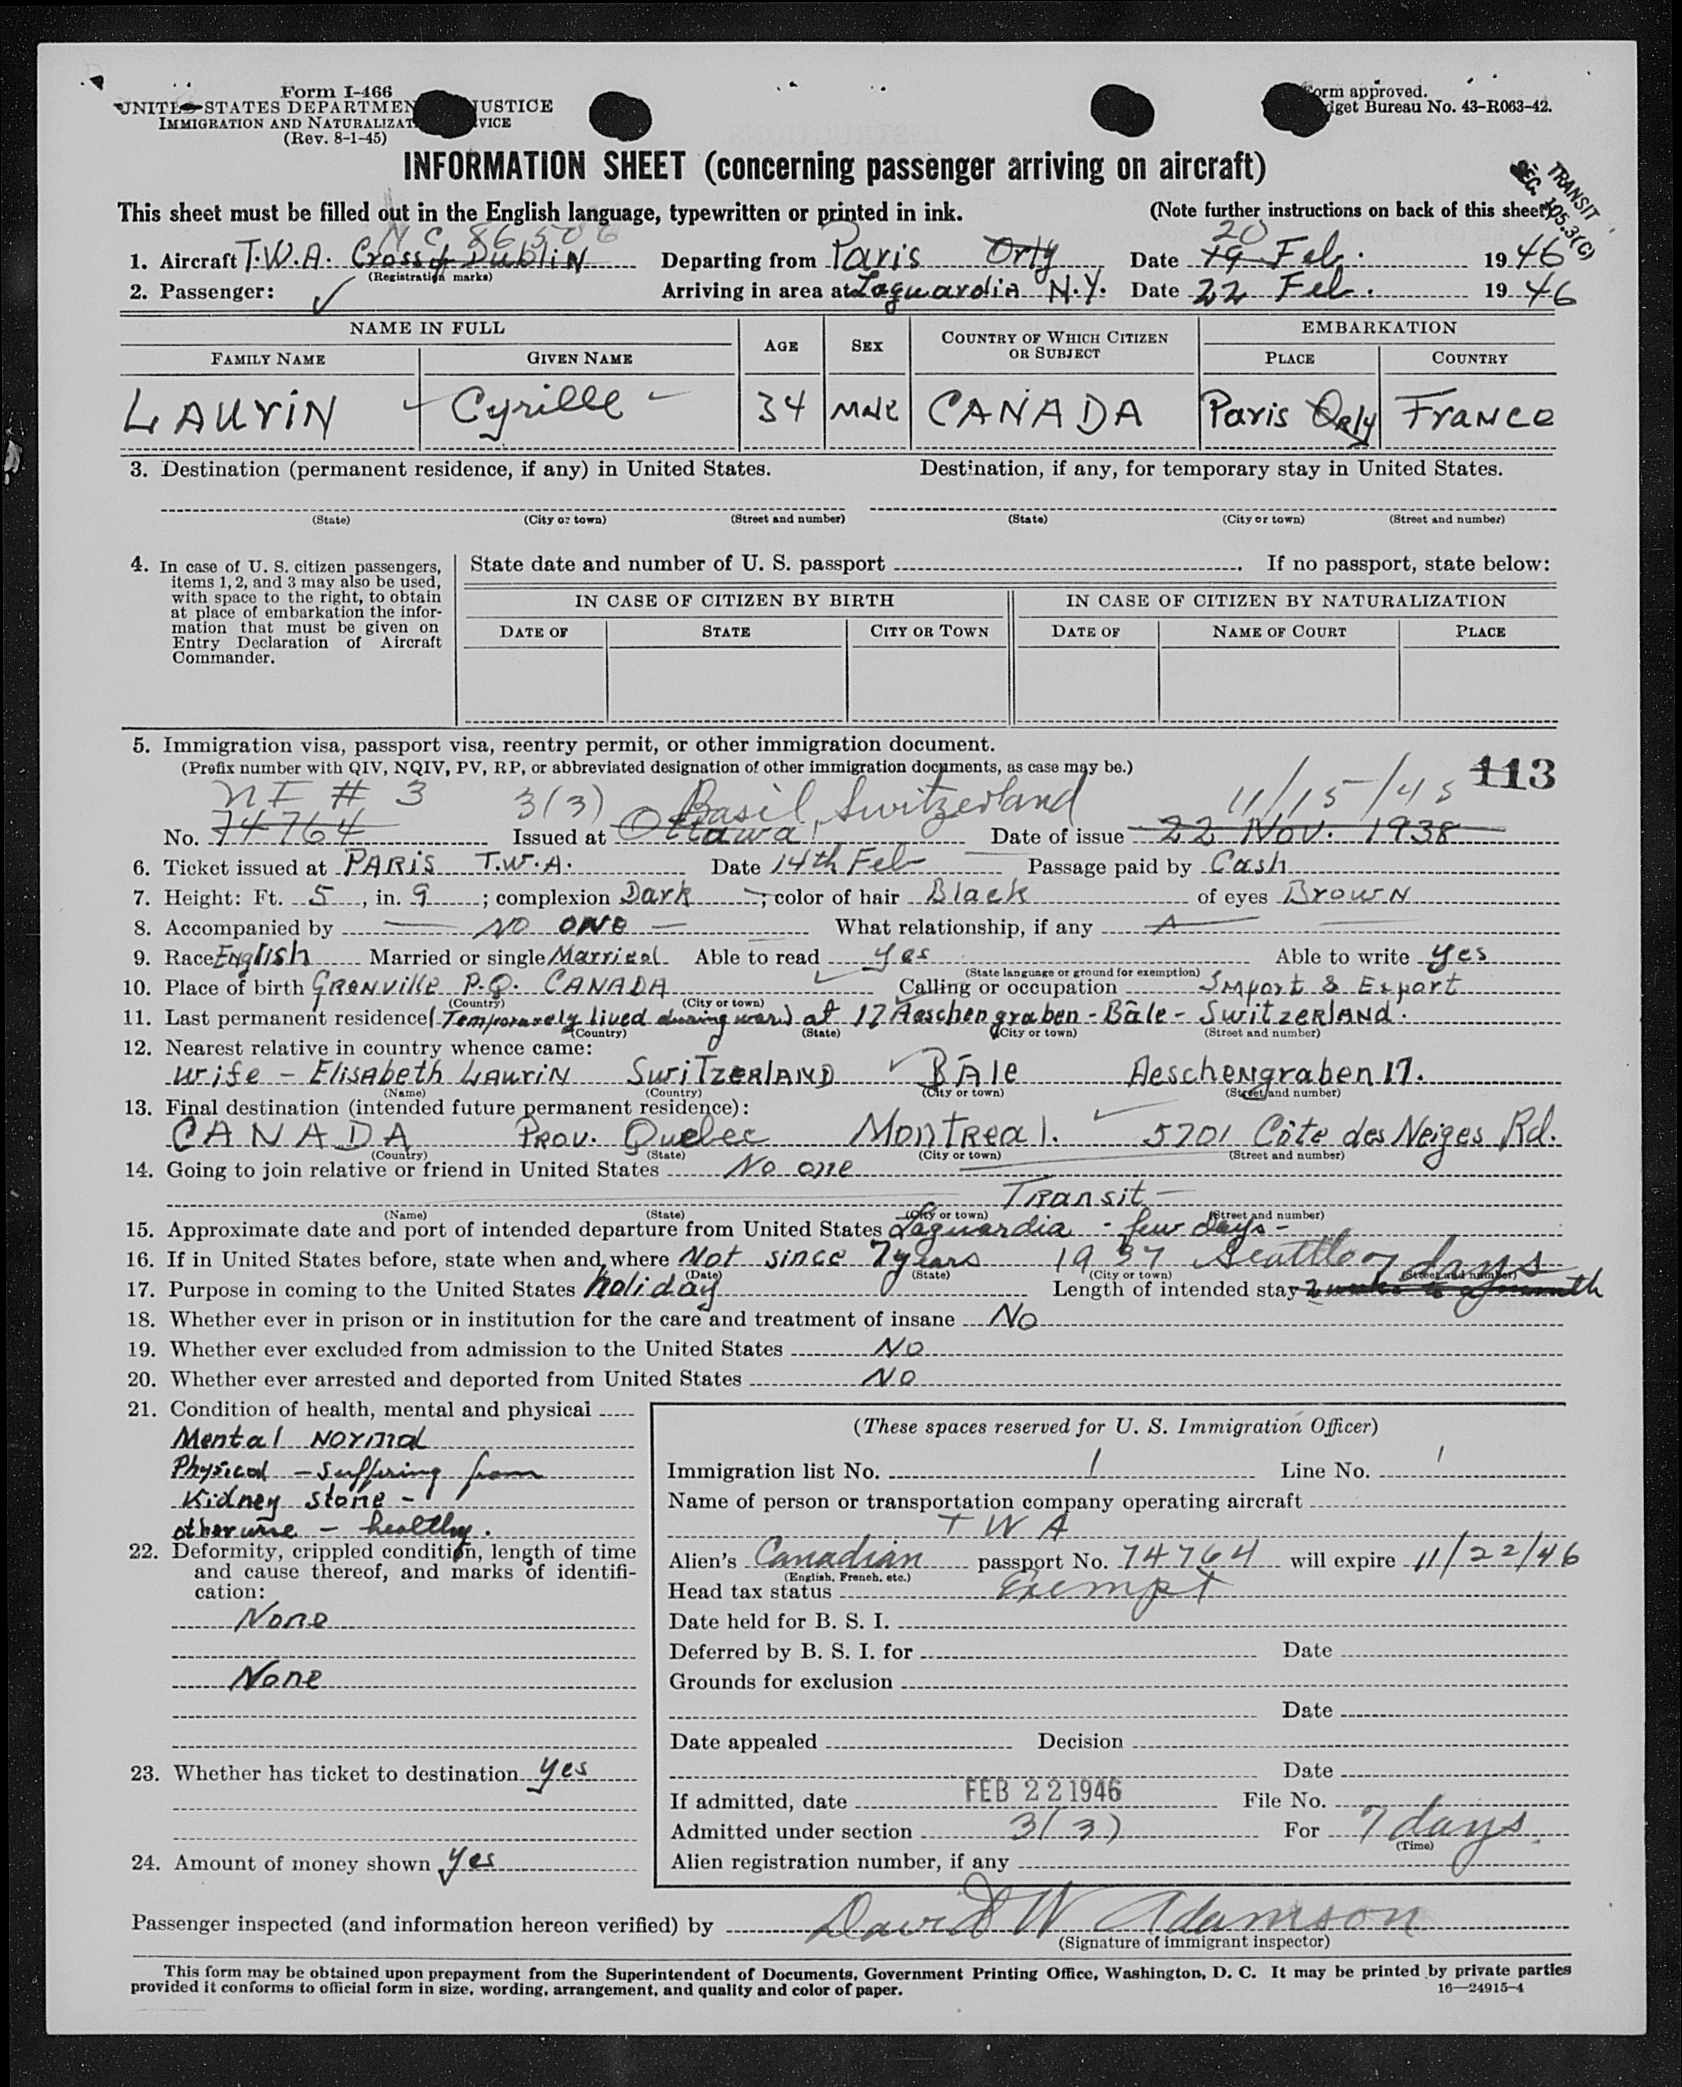 Form I-466
UNITED STATES DEPARTMENT JUSTICE
IMMIGRATION AND NATURALIZAT VICE
(Rev. 8-1-45)
Form approved.
dget Bureau No. 43-R063-42.
INFORMATION SHEET (concerning passenger arriving on aircraft)
TRANSIT
SEC. 105.3(C)
This sheet must be filled out in the English language, typewritten or printed in ink. (Note further instructions on back of this sheet)
N C 86506 20
1. Aircraft T.W.A. Cross of Dublin Departing from Paris Orly Date 19 Feb. 1946
(Registration marks)
2. Passenger: Arriving in area at Laguardia N.Y. Date 22 Feb. 1946
NAME IN FULL AGE SEX COUNTRY OF WHICH CITIZEN OR SUBJECT EMBARKATION
FAMILY NAME GIVEN NAME PLACE COUNTRY
LAURIN Cyrille 34 Male CANADA Paris Orly France
3. Destination (permanent residence, if any) in United States. Destination, if any, for temporary stay in United States.
(State) (City or town) (Street and number) (State) (City or town) (Street and number)
4. In case of U. S. citizen passengers,
items 1, 2, and 3 may also be used,
with space to the right, to obtain
at place of embarkation the infor-
mation that must be given on
Entry Declaration of Aircraft
Commander.
State date and number of U. S. passport . If no passport, state below:
IN CASE OF CITIZEN BY BIRTH IN CASE OF CITIZEN BY NATURALIZATION
DATE OF STATE CITY OR TOWN DATE OF NAME OF COURT PLACE
5. Immigration visa, passport visa, reentry permit, or other immigration document.
(Prefix number with QIV, NQIV, PV, RP, or abbreviated designation of other immigration documents, as case may be.)
113
NI # 3 3(3) Basil, Switzerland 11/15/45
No. 74764 Issued at Ottawa Date of issue 22 Nov. 1938
6. Ticket issued at PARIS T.W.A. Date 14th Feb Passage paid by Cash
7. Height: Ft. 5, in. 9; complexion Dark; color of hair Black of eyes Brown
8. Accompanied by — NO ONE — What relationship, if any
9. Race English Married or single Married Able to read yes Able to write yes
(State language or ground for exemption)
10. Place of birth Grenville P.Q. CANADA Calling or occupation Import & Export
(Country) (City or town)
11. Last permanent residence (Temporarely lived during war) at 17 Aeschengraben - Bâle - Switzerland.
(Country) (State) (City or town) (Street and number)
12. Nearest relative in country whence came:
wife - Elisabeth LAURIN SWITZERLAND Bâle Aeschengraben 17.
(Name) (Country) (City or town) (Street and number)
13. Final destination (intended future permanent residence):
CANADA Prov. Quebec Montreal. 5701 Côte des Neiges Rd.
(Country) (State) (City or town) (Street and number)
14. Going to join relative or friend in United States No one
Transit -
(Name) (State) (City or town) (Street and number)
15. Approximate date and port of intended departure from United States Laguardia - few days -
16. If in United States before, state when and where Not since 7 years 1937 Seattle
(Date) (State) (City or town) (Street and number)
7 days
17. Purpose in coming to the United States holiday Length of intended stay 2 weeks to a month
18. Whether ever in prison or in institution for the care and treatment of insane No
19. Whether ever excluded from admission to the United States No
20. Whether ever arrested and deported from United States No
21. Condition of health, mental and physical
Mental Normal
Physical - Suffering from
Kidney stone -
otherwise - healthy.
22. Deformity, crippled condition, length of time
and cause thereof, and marks of identifi-
cation:
None
None
23. Whether has ticket to destination yes
24. Amount of money shown yes
(These spaces reserved for U. S. Immigration Officer)
Immigration list No. 1 Line No. 1
Name of person or transportation company operating aircraft
TWA
Alien's Canadian passport No. 74764 will expire 11/22/46
(English, French, etc.)
Head tax status Exempt
Date held for B. S. I.
Deferred by B. S. I. for Date
Grounds for exclusion
Date
Date appealed Decision
Date
If admitted, date FEB 22 1946 File No.
Admitted under section 3(3) For 7 days
(Time)
Alien registration number, if any
Passenger inspected (and information hereon verified) by David W Adamson
(Signature of immigrant inspector)
This form may be obtained upon prepayment from the Superintendent of Documents, Government Printing Office, Washington, D. C. It may be printed by private parties
provided it conforms to official form in size, wording, arrangement, and quality and color of paper. 16—24915-4